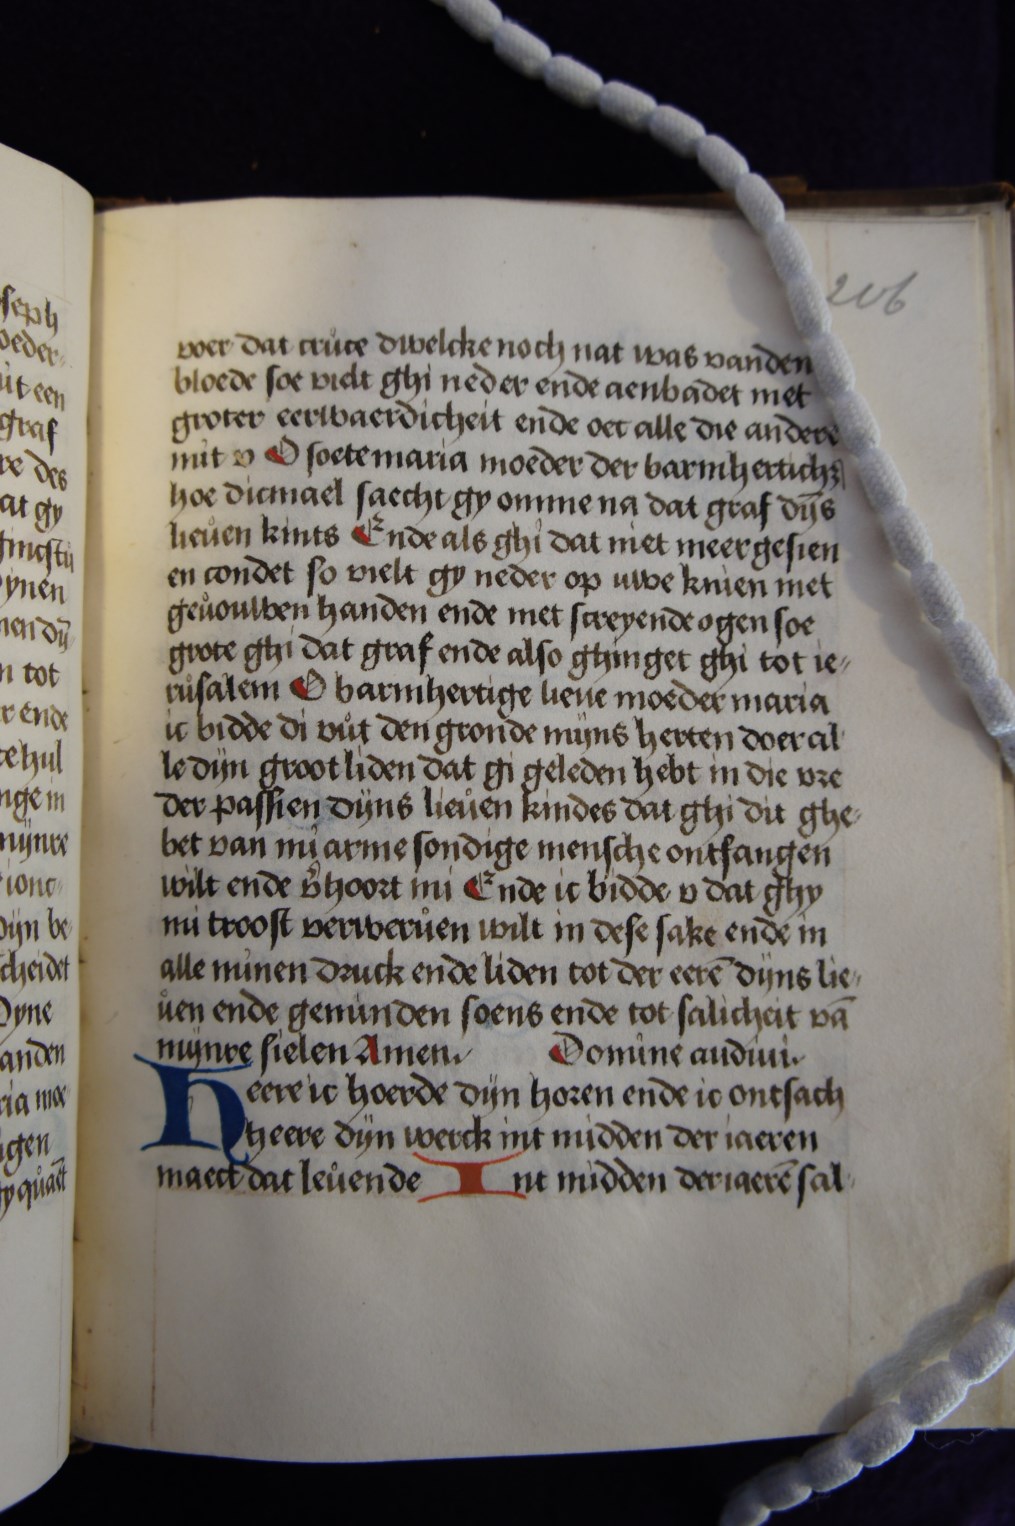 206
voer dat crůce dwelcke noch nat was vanden
bloede soe vielt ghi neder ende aenbadet met
groter eerwaerdicheit ende oec alle die andere
mit v O soete maria moeder der barmhertich
hoe dicmael saecht gy omme na dat graf dijs̄
lieůen kints Ende als ghi dat niet meer gesien
en condet so vielt gy neder op uwe knien met
geůouwen handen ende met screyende ogen soe
grote ghi dat graf ende also ghinget ghi tot ie⸗
růsalem O barmhertige lieue moeder maria
ic bidde di vůt den gronde mijns herten doer al
le dijn groot liden dat gi geleden hebt in die vre
der passien dijns lieůen kindes dat ghi dit ghe⸗
bet van mi arme sondige mensche ontfangen
wilt ende v̄hoort mi Ende ic bidde v dat ghy
mi troost verwerůen wilt in dese sake ende in
alle minen druck ende liden tot der eerē dijns lie⸗
ůen ende geminden soens ende tot salicheit vā
mijnre sielen Amen. Domine audiui.
Heere ic hoerde dijn horen ende ic ontsach
heere dijn werck int midden der iaeren
maect dat leůende Int midden der iaerē sal